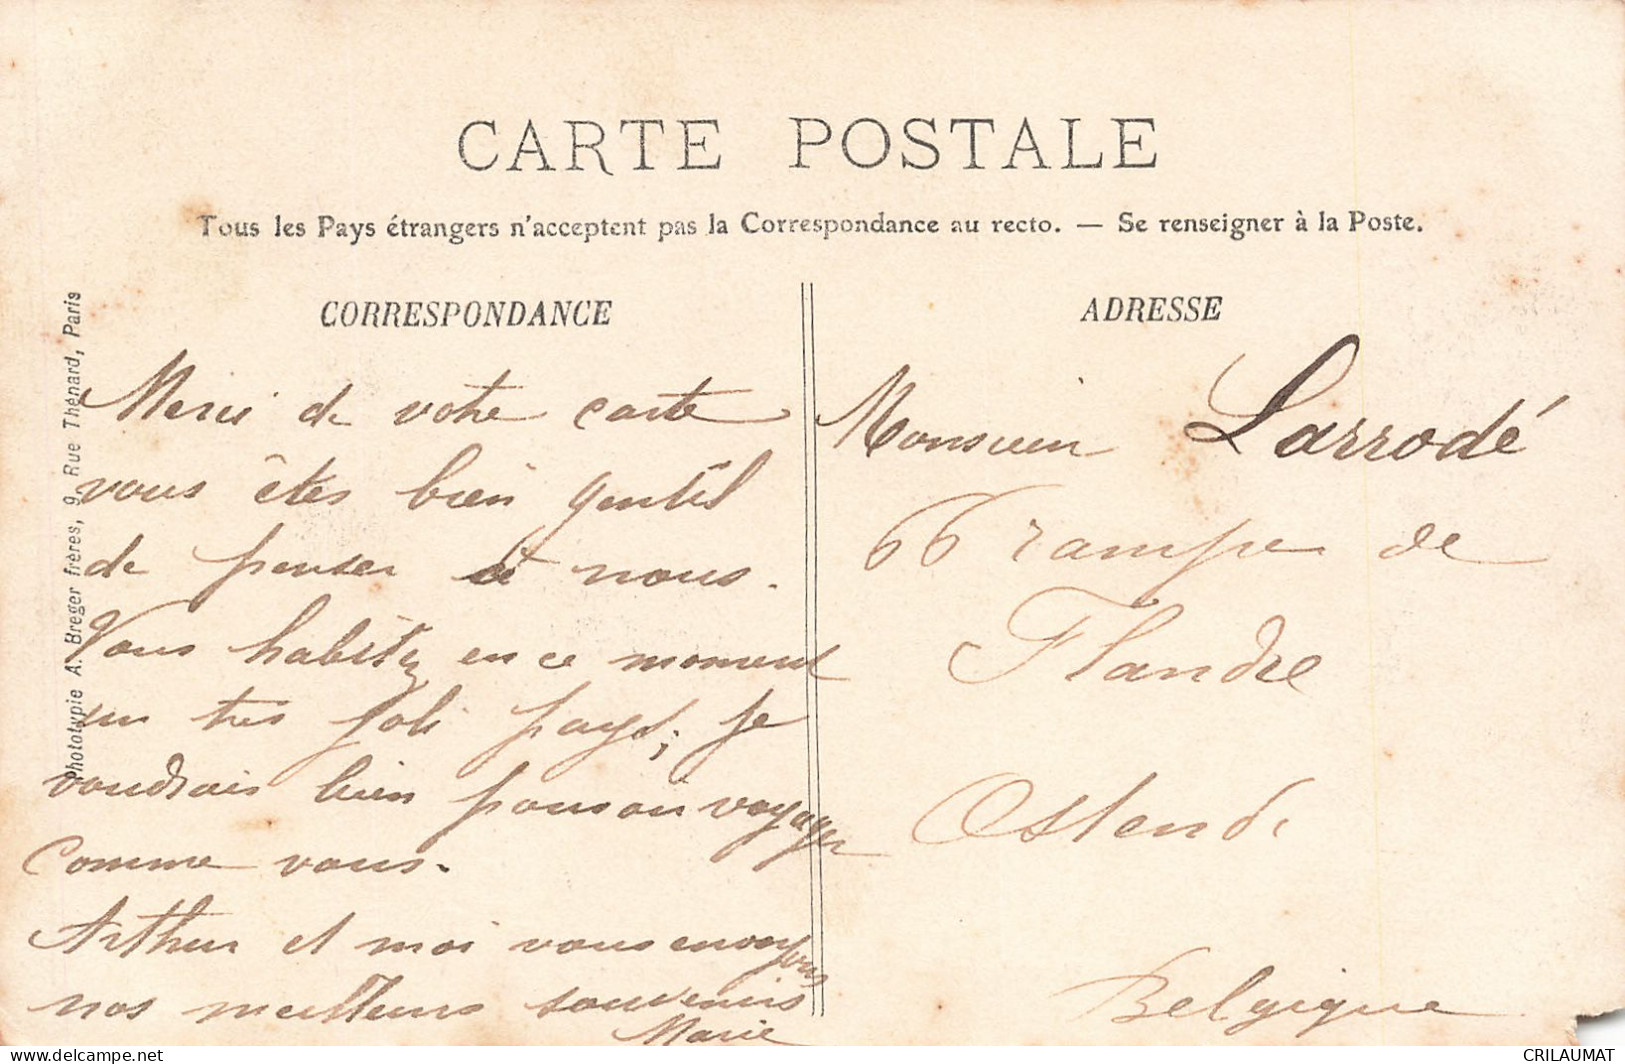 CARTE POSTALE
Tous les Pays étrangers n'acceptent pas la Correspondance au recto. — Se renseigner à la Poste.
CORRESPONDANCE
Merci de votre carte
vous êtes bien gentil
de penser à nous.
Vous habitez en ce moment
un tres joli pays, je
voudrais bien pouvoir voyager
comme vous.
Arthur et moi vous envoyons
nos meilleurs souvenirs
Marie
ADRESSE
Monsieur Larrodé
66 rampe de
Flandre
Ostende
Belgique
Phototypie A. Breger frères, 9, Rue Thénard, Paris
delcampe.net
CRILAUMAT